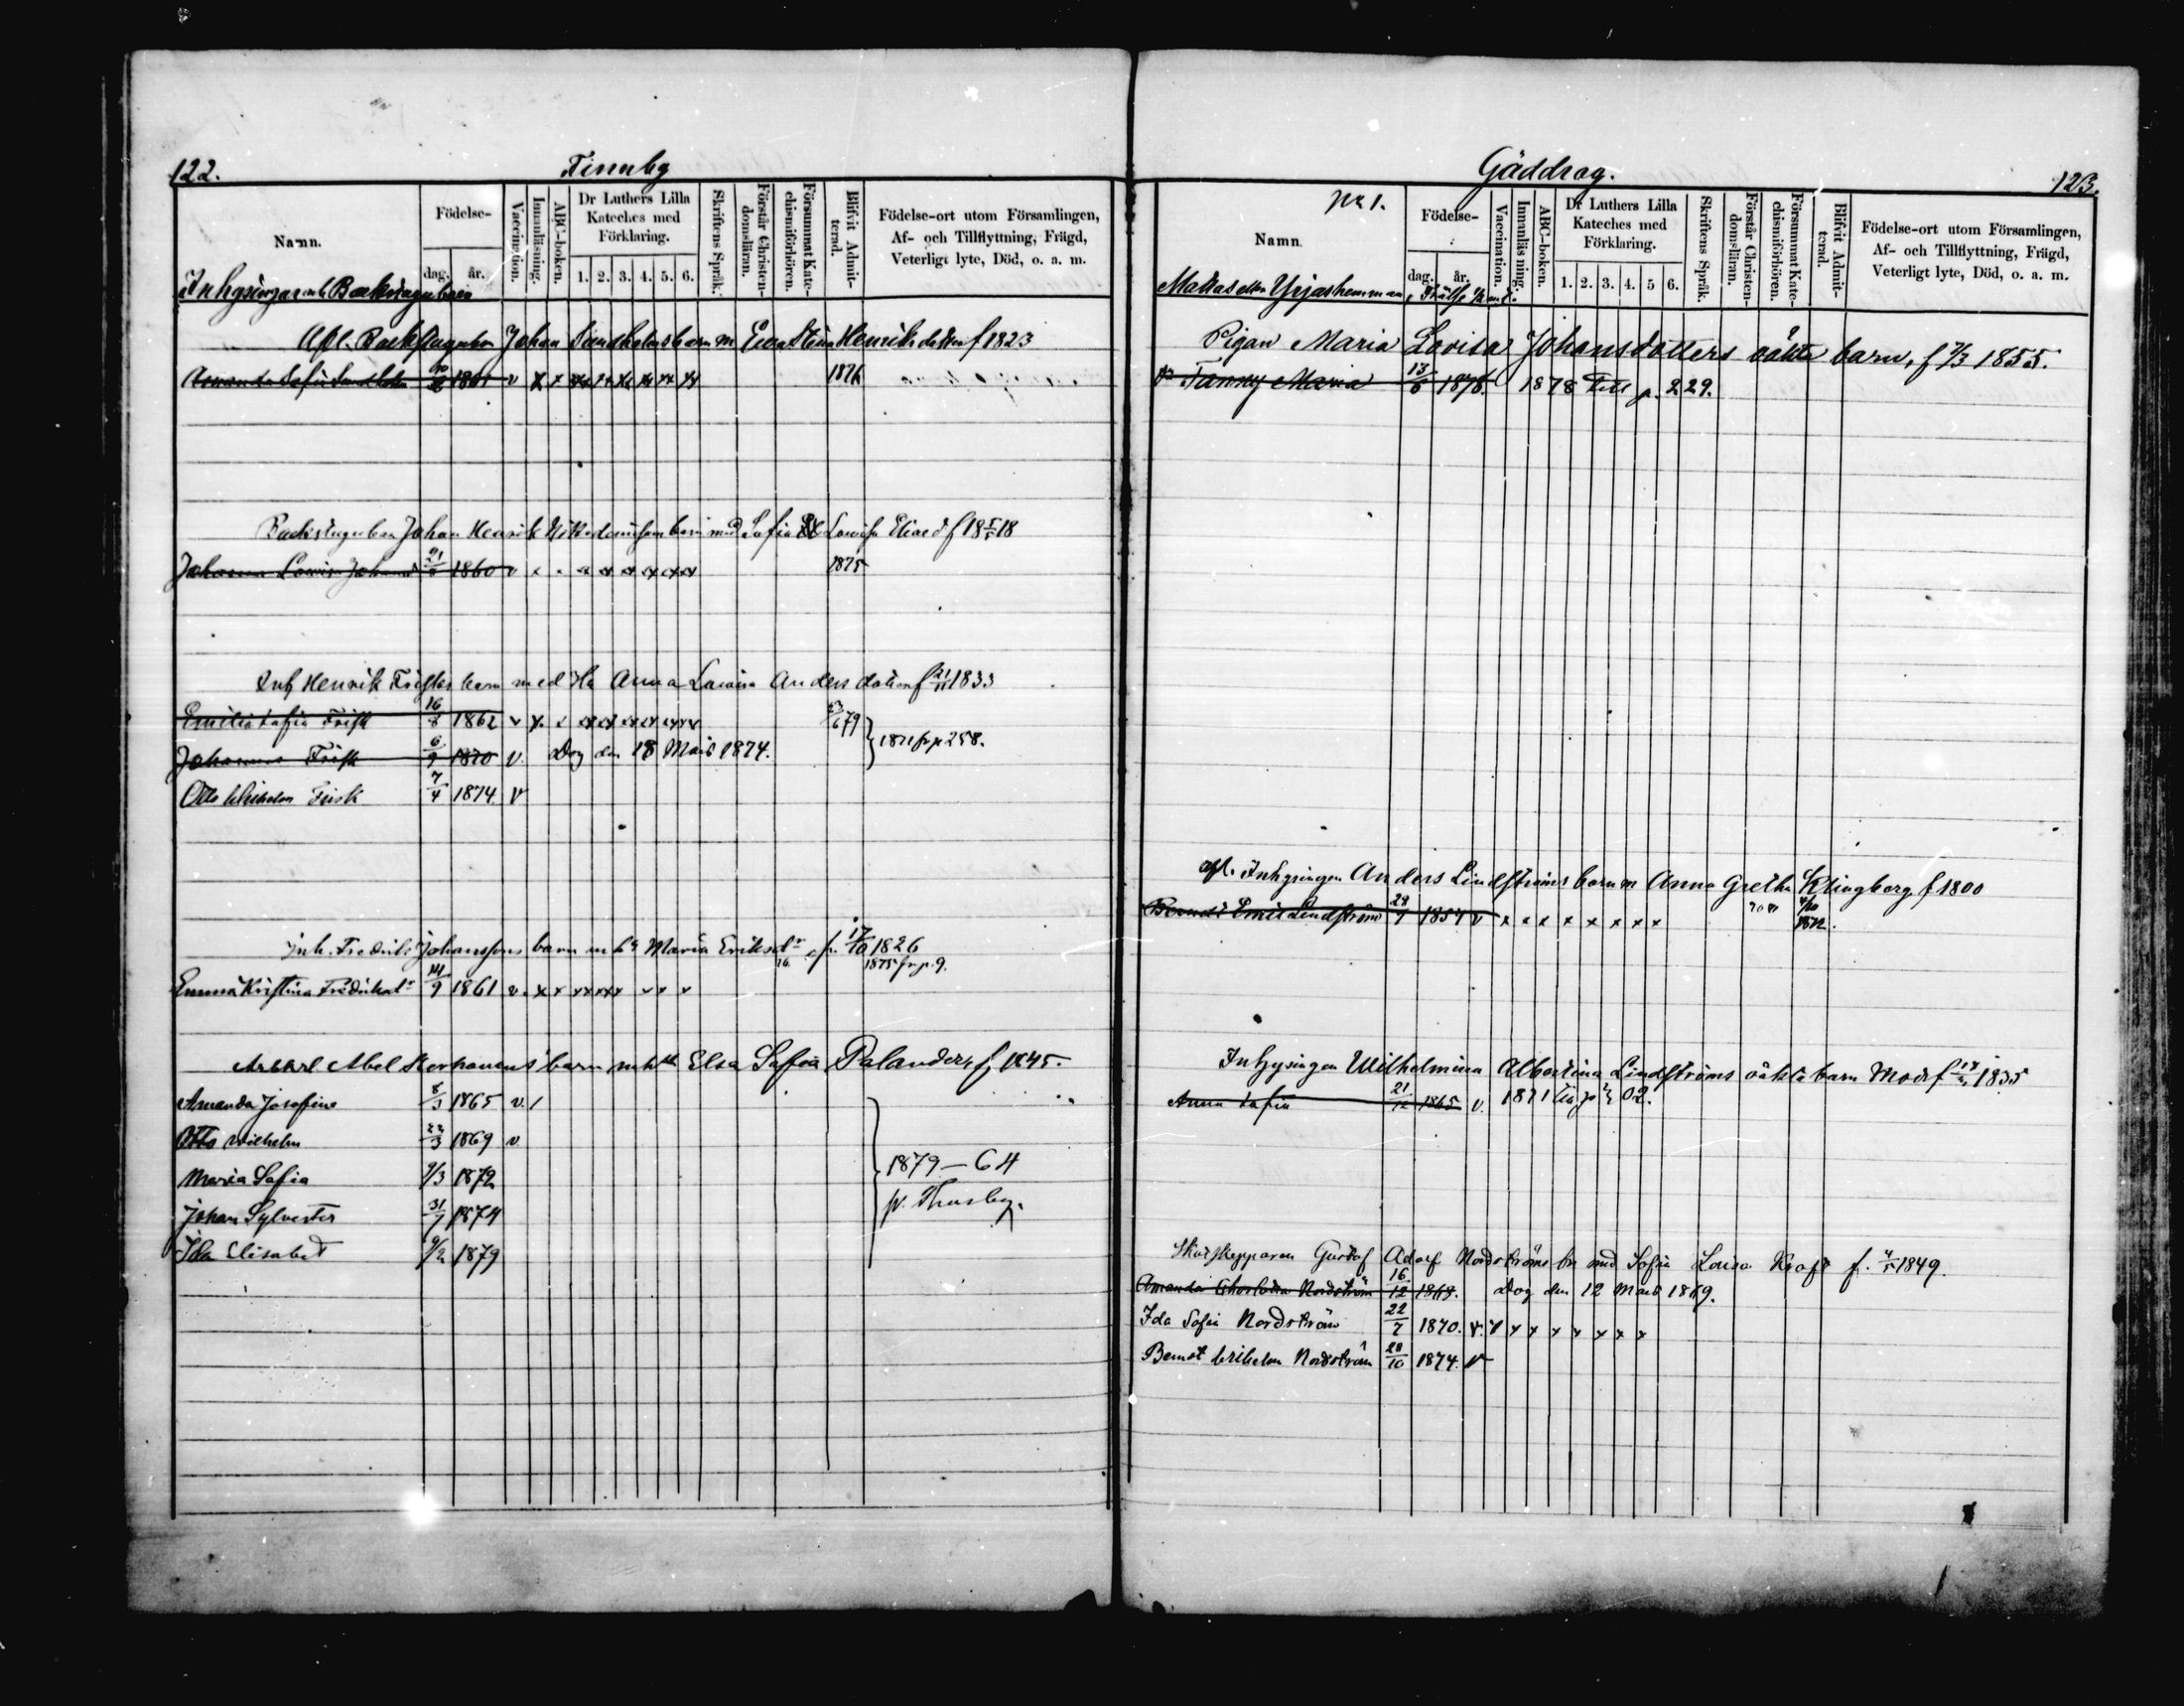 122.
Finnby
Namn.
Födelse-
dag. år.
Vaccination.
Innanläsning.
ABC-boken.
Dr Luthers Lilla
Kateches med
Förklaring.
1. 2. 3. 4. 5. 6.
Skriftens Språk.
Förstår Christen-
domsläran.
Försummat Kate-
chismiförhören.
Blifvit Admit-
terad.
Födelse-ort utom Församlingen,
Af- och Tillflyttning, Frägd,
Veterligt lyte, Död, o. a. m.
Inhysingar och Backstugubarn
Afl. Backstugubon Johan Sandholms barn m Eva Stina Henriksdotter f 1823
Amanda Sofia Sandholm 1861 v x x xx xx xx xx xx xx 1876
Backstugubon Johan Henrik barn med Safia Lovisa Elias d f 18 5/5 18
Johanna Lovisa Johansd 21 1860 v x x x x x x x x 1875
Inh Henrik Frisks barn med Hu Anna Lovisa Anders dotter f 21/11 1833
Emilia Sofia Frisk 16/8 1862 v x x x x x x x x 79
Johannes Frisk 6/9 1870 v. Dog den 18 Mars 1874. } 1871 fr p 258.
Otto Wilhelm Frisk 7/4 1874 v
Inh. Fredrik Johanssons barn m hu Maria Eriksdr f. 17/10 1826
1875 fr. p. 9.
Emma Kristina Fredriksdr 14/9 1861 v. x x x x x x x x
Arb Karl Abel Korhonens barn m h Elsa Sofia Palander f, 1845.
Amanda Josefina 8/3 1865 v. /
Otto Wilhelm 22/3 1869 v
Maria Sofia 9/3 1872
Johan Sylvester 31/7 1874
Ida Elisabet 9/2 1879
} 1879 — 64
fr. Thusby.
Gäddrag.
123.
No 1.
Namn
Födelse-
dag. år.
Vaccination.
Innanläsning.
ABC-boken.
Dr Luthers Lilla
Kateches med
Förklaring.
1. 2. 3. 4. 5 6.
Skriftens Språk.
Förstår Christen-
domsläran.
Försummat Kate-
chismiförhören.
Blifvit Admit-
terad.
Födelse-ort utom Församlingen,
Af- och Tillflyttning, Frägd,
Veterligt lyte, Död, o. a. m.
Mattas eller Yrjashemman, Frälse
Pigan Maria Lovisa Johansdotters oäkta barn, f 7/3 1855.
Fanny Maria 13/6 1878. 1878 Till p. 229.
Afl. Inhysingen Anders Lindströms barn m Anna Gretha Klingberg f 1800
Berndt Emil Lindström 28/7 1854 v x x x x x x x x 1872.
Inhysingen Wilhelmina Albertina Lindströms oäkta barn Modr f 1835
Anna Sofia 21/12 1865 v. 1871 till p 302.
Skutskepparen Gustaf Adolf Nordströms bn med Sofia Lovisa Kraft f. 4/5 1849.
Amanda Charlotta Nordström 16/12 1868. Dog den 12 Mars 1869.
Ida Sofia Nordström 22/7 1870. v. v x x x x x x x
Bernt Wilhelm Nordström 28/10 1874. v